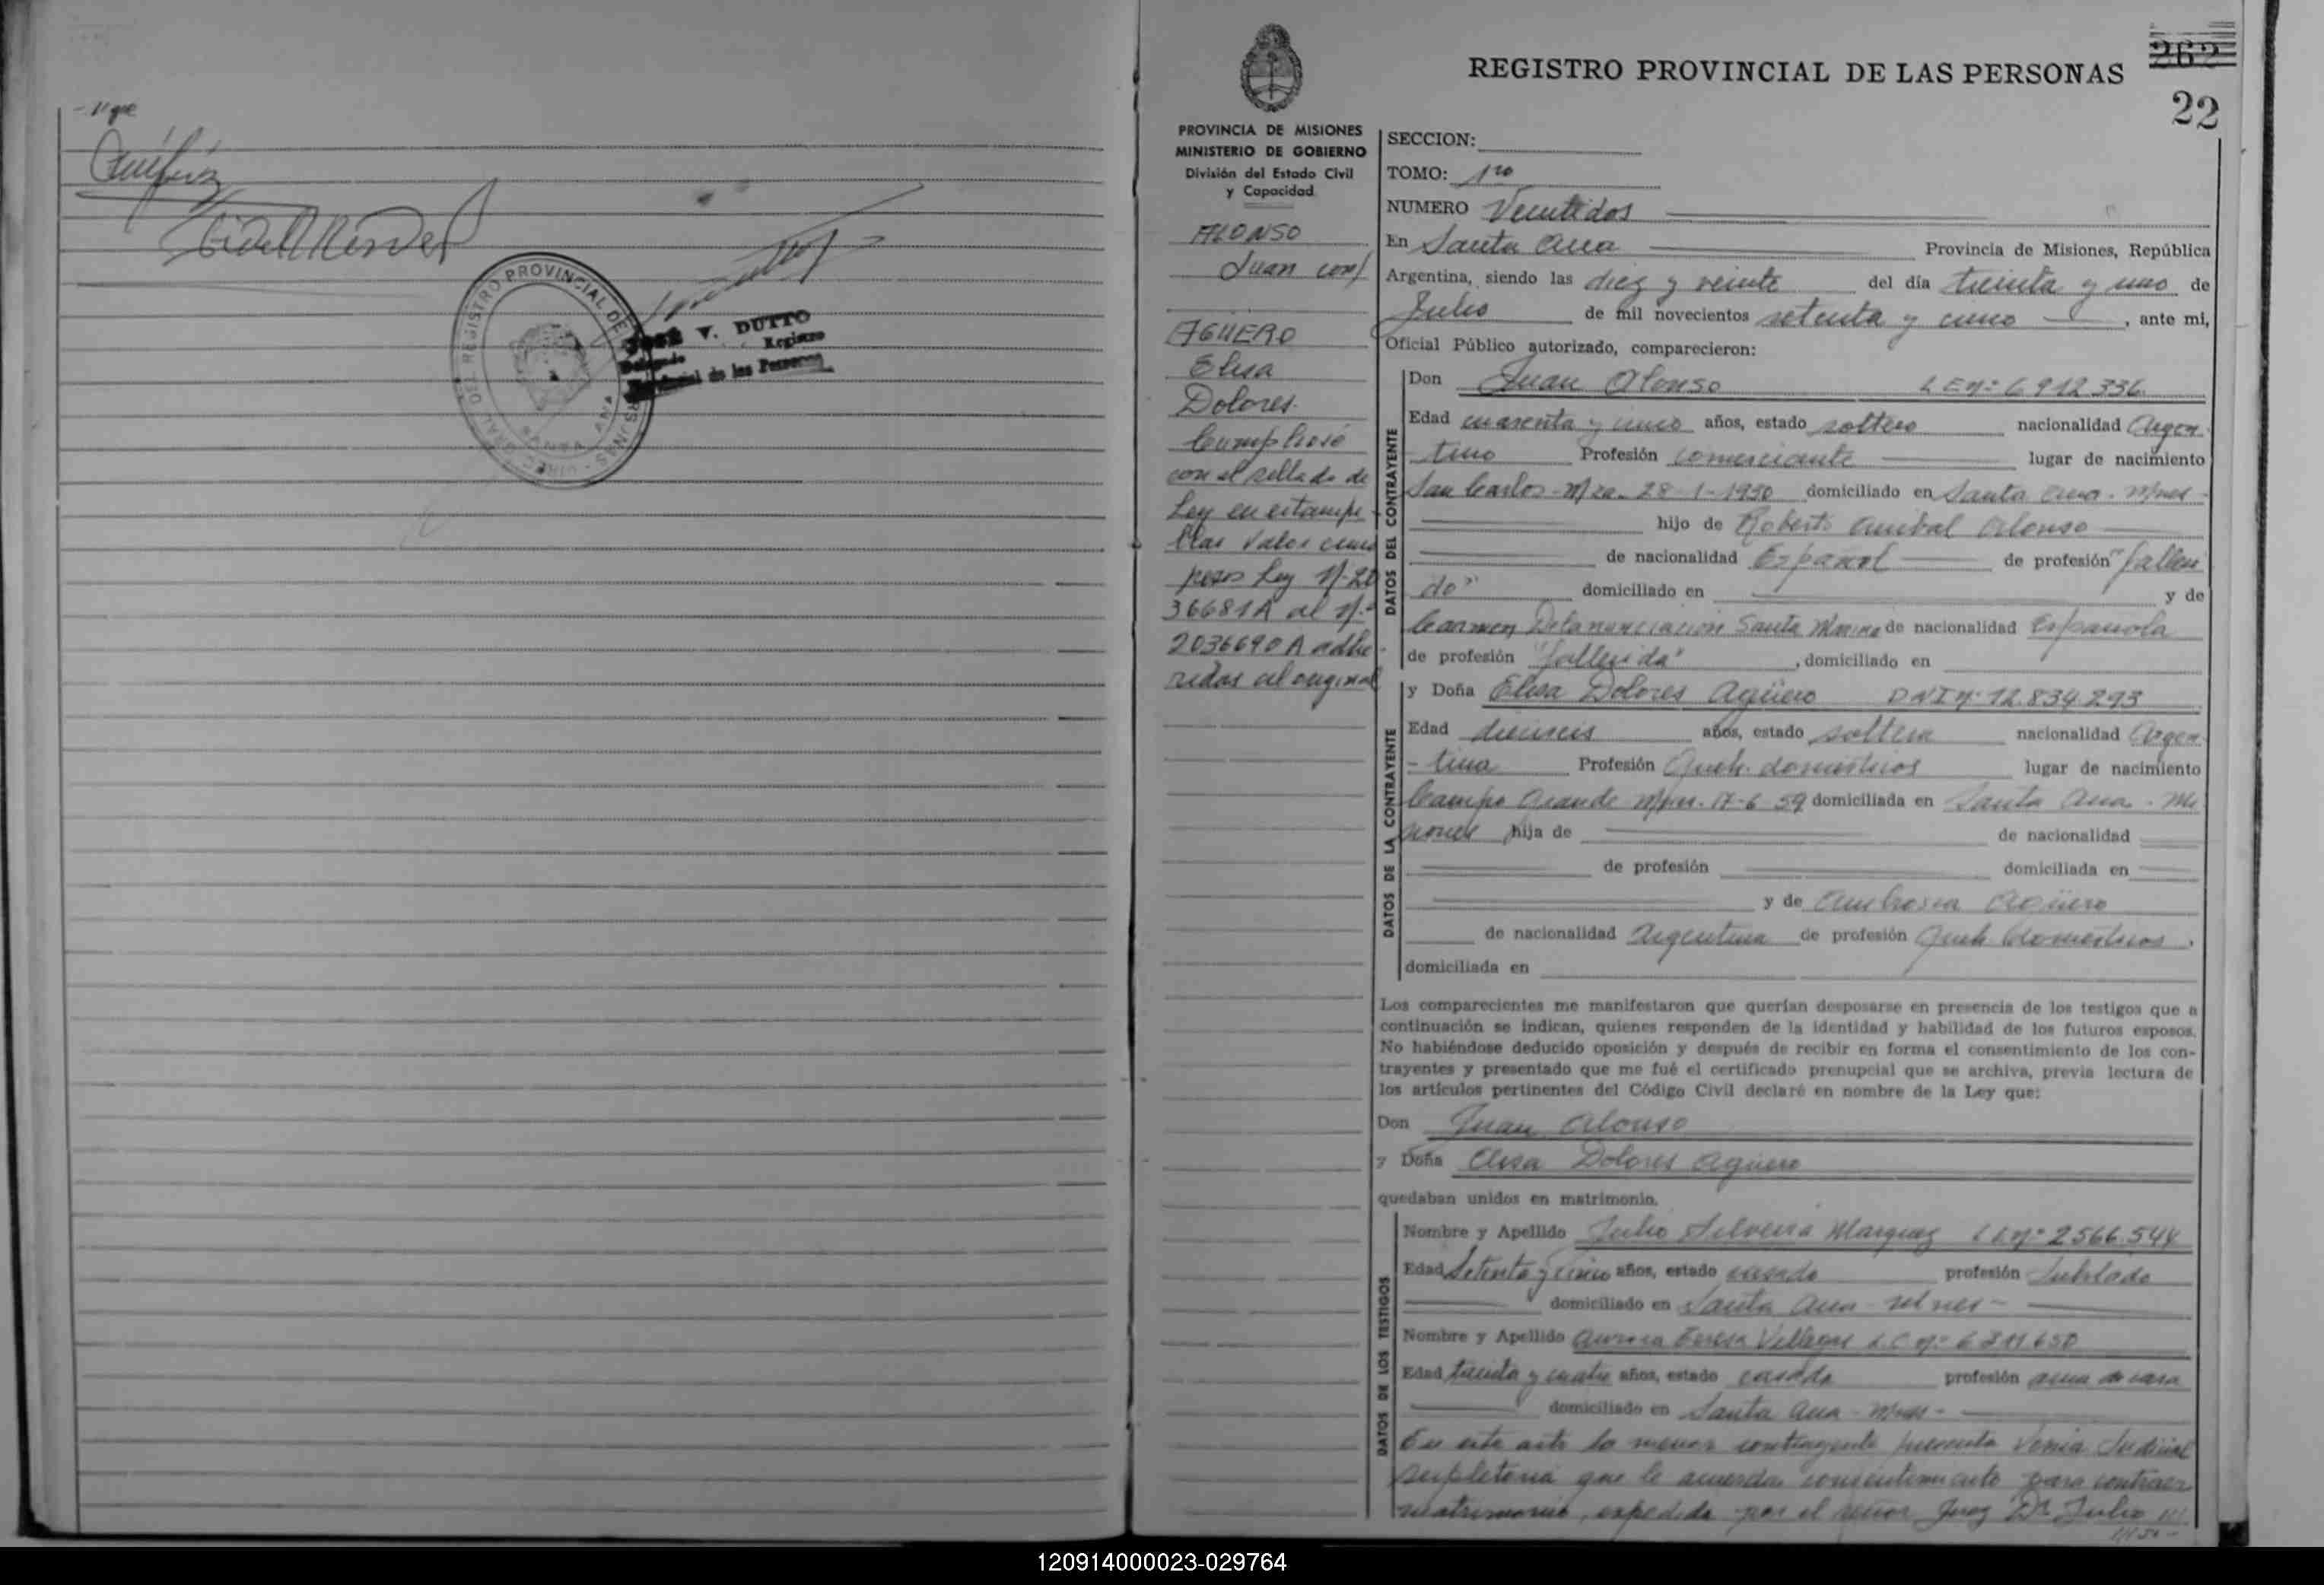 REGISTRO PROVINCIAL DE
SANTA ANA
JOSE V. DUTTO
Delegado Registro
Provincial de las Personas
262
REGISTRO PROVINCIAL DE LAS PERSONAS
22
PROVINCIA DE MISIONES
MINISTERIO DE GOBIERNO
División del Estado Civil
y Capacidad
ALONSO
Juan con/
AGUERO
Elisa
Dolores
Cumplióse
con el sellado de
Ley en estampi
llas valor cinco
pesos Ley Nº 20
36681A al Nº
2036690 A adhe-
ridas al original
SECCION:
TOMO: 1ro
NUMERO Veintidos
En Santa Ana Provincia de Misiones, República
Argentina, siendo las diez y veinte del día treinta y uno de
Julio de mil novecientos setenta y cinco , ante mi,
Oficial Público autorizado, comparecieron:
DATOS DEL CONTRAYENTE
Don Juan Alonso L E Nº 6.912.336
Edad cuarenta y cinco años, estado soltero nacionalidad Argen-
tino Profesión comerciante lugar de nacimiento
San Carlos 28-1-1930 domiciliado en Santa Ana - Mnes -
hijo de Roberto Anibal Alonso
de nacionalidad Español de profesión "falleci
do" domiciliado en y de
Carmen Santa Marina de nacionalidad Española
de profesión "fallecida" , domiciliado en
DATOS DE LA CONTRAYENTE
y Doña Elisa Dolores Agüero DNI Nº 12.834.293
Edad dieciseis años, estado soltera nacionalidad Argen
- tina Profesión Queh. domésticos lugar de nacimiento
Campo Grande Mnes. 17-6-59 domiciliada en Santa Ana - Mi
siones hija de de nacionalidad
de profesión domiciliada en
y de Ambrosia Agüero
de nacionalidad Argentina de profesión Queh. domésticos ,
domiciliada en
Los comparecientes me manifestaron que querían desposarse en presencia de los testigos que a
continuación se indican, quienes responden de la identidad y habilidad de los futuros esposos.
No habiéndose deducido oposición y después de recibir en forma el consentimiento de los con-
trayentes y presentado que me fué el certificado prenupcial que se archiva, previa lectura de
los artículos pertinentes del Código Civil declaré en nombre de la Ley que:
Don Juan Alonso
y Doña Elisa Dolores Agüero
quedaban unidos en matrimonio.
DATOS DE LOS TESTIGOS
Nombre y Apellido Julio Silveira Marquez L E Nº 2566.544
Edad Setenta y cinco años, estado casado profesión Jubilado
domiciliado en Santa Ana - Mnes -
Nombre y Apellido Aurora Teresa L.C. Nº 6811650
Edad treinta y cuatro años, estado casada profesión ama de casa
domiciliado en Santa Ana - Mnes -
En este acto la menor contrayente presenta Venia Judicial
supletoria que le acuerda consentimiento para contraer
matrimonio, expedida por el señor Juez Dr. Julio
120914000023-029764